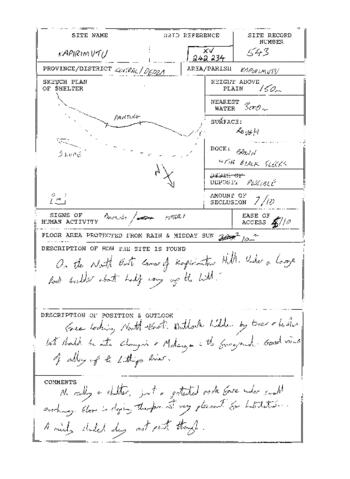 SITE NAME GRID REFERENCE SITE RECORD NUMBER
KAPIRIMUTU XV 242 234 543
PROVINCE/DISTRICT CENTRAL/DEDZA AREA/PARISH KAPIRIMUTU
SKETCH PLAN OF SHELTER
PAINTING
SLOPE
HEIGHT ABOVE PLAIN 150m
NEAREST WATER
SURFACE:
ROUGH
ROCK: BROWN
WITH BLACK
DEPOSIT POSSIBLE
AMOUNT OF SECLUSION 7/10
SIGNS OF HUMAN ACTIVITY
EASE OF ACCESS /10
FLOOR AREA PROTECTED FROM RAIN & MIDDAY SUN
DESCRIPTION OF HOW THE SITE IS FOUND
On the North East corner of Kapirimutu Hill. Under a large
boulder about half way up the hill.
DESCRIPTION OF POSITION & OUTLOOK
Face looking North East. Outlook hidden by trees &
but should be into & in the foreground. Good views
of valley up to River.
COMMENTS
No really a shelter, just a protected rock face under small
overhang. Floor is sloping therefore not very pleasant for habitation.
A nicely shaded day rest point though.